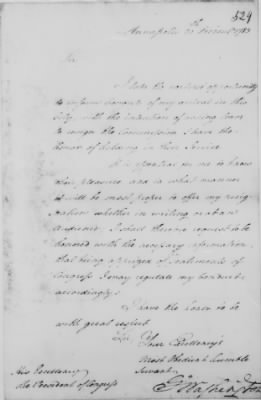 529
Annapolis 20th Decem.r 1783
Sir
I take the earliest opportunity
to inform Congress of my arrival in this
City, with the intention of asking leave
to resign the Commission I have the
honor of holding in their Service
It is essential for me to know
their pleasure, and in what manner
it will be most proper to offer my resig-
nation whether in writing or at an
Audience; I shall therefore request to be
honored with the necessary information,
that being apprized of the sentiments of
Congress I may regulate my Conduct
accordingly.
I have the honor to be
with great respect
Sir Your Excellency's
most Obedient humble
Servant
G:o Washington
His Excellency
the President of Congress